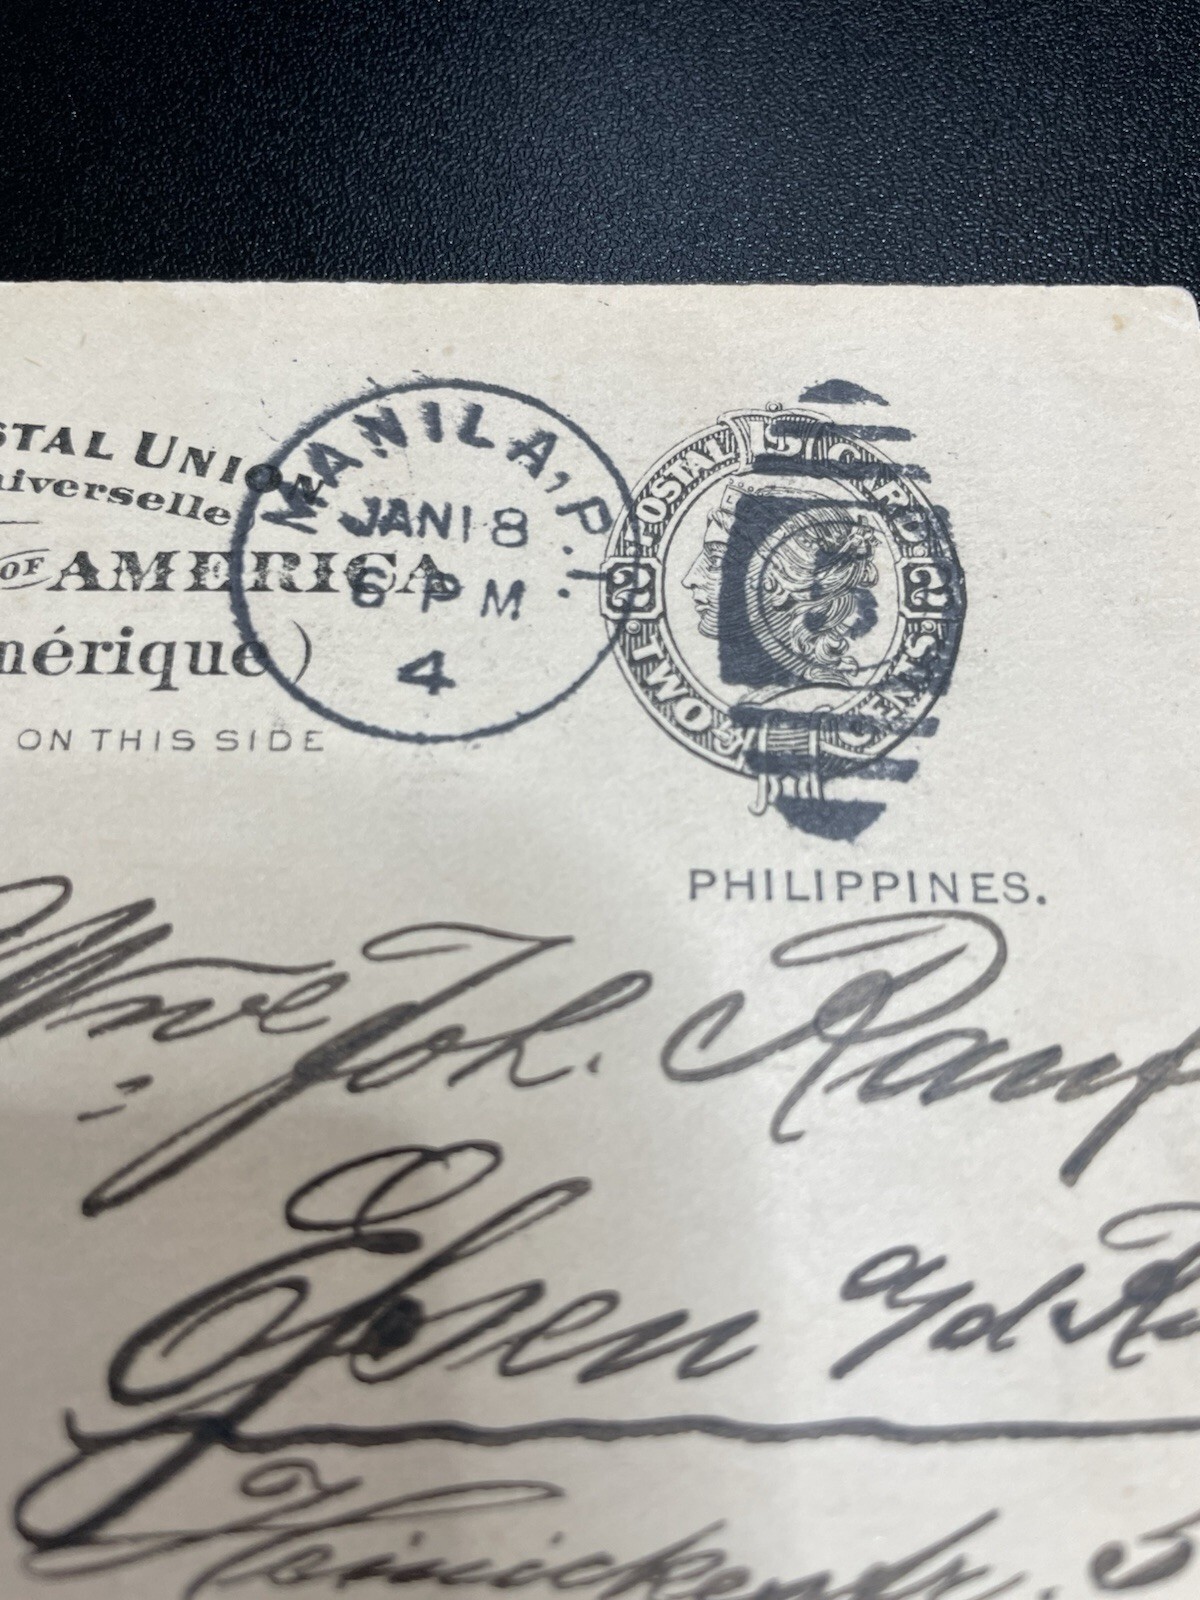 STAL UNION
niverselle
OF AMERICA
mérique)
ON THIS SIDE
MANILA, P.I.
JAN 18
6 PM
4
POSTAL CARD
2 2
TWO CENTS
PHILIPPINES.
Wwe Joh.
Essen a/d